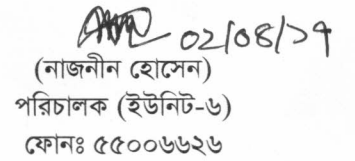 ০২/০৪/১৭
(নাজনীন হোসেন)
পরিচালক (ইউনিট-৬)
ফোনঃ ৫৫০০৬৬২৬